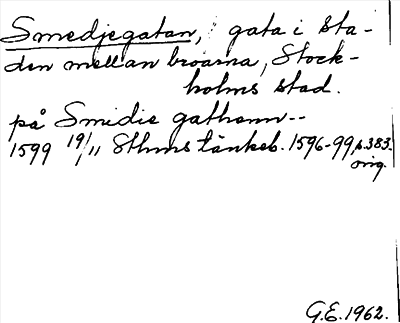 Smedjegatan, gata i Sta-
den mellan broarna, Stock-
holms stad.
på Smidie gathonn--
1599 19/11 Sthms tänkeb. 1596-99, p. 383.
orig.
G.E. 1962.